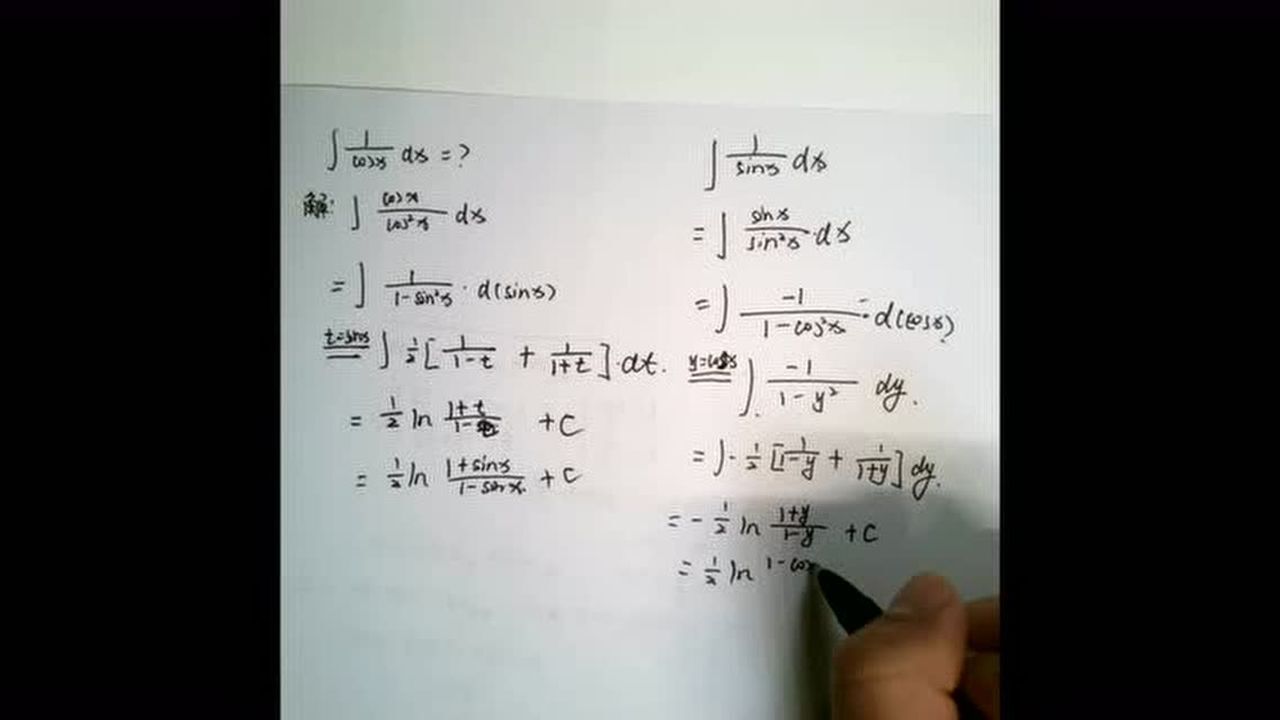 ∫ 1/cosx dx = ?
解: ∫ cosx/cos²x dx
= ∫ 1/(1-sin²x) · d(sinx)
t=sinx ∫ 1/2 [1/(1-t) + 1/(1+t)] · dt.
= 1/2 ln (1+t)/(1-t) + C
= 1/2 ln (1+sinx)/(1-sinx) + C
∫ 1/sinx dx
= ∫ sinx/sin²x · dx
= ∫ -1/(1-cos²x) · d(cosx)
y=cosx ∫ -1/(1-y²) dy.
= ∫ - 1/2 [1/(1-y) + 1/(1+y)] dy.
= - 1/2 ln (1+y)/(1-y) + C
= 1/2 ln 1-cos